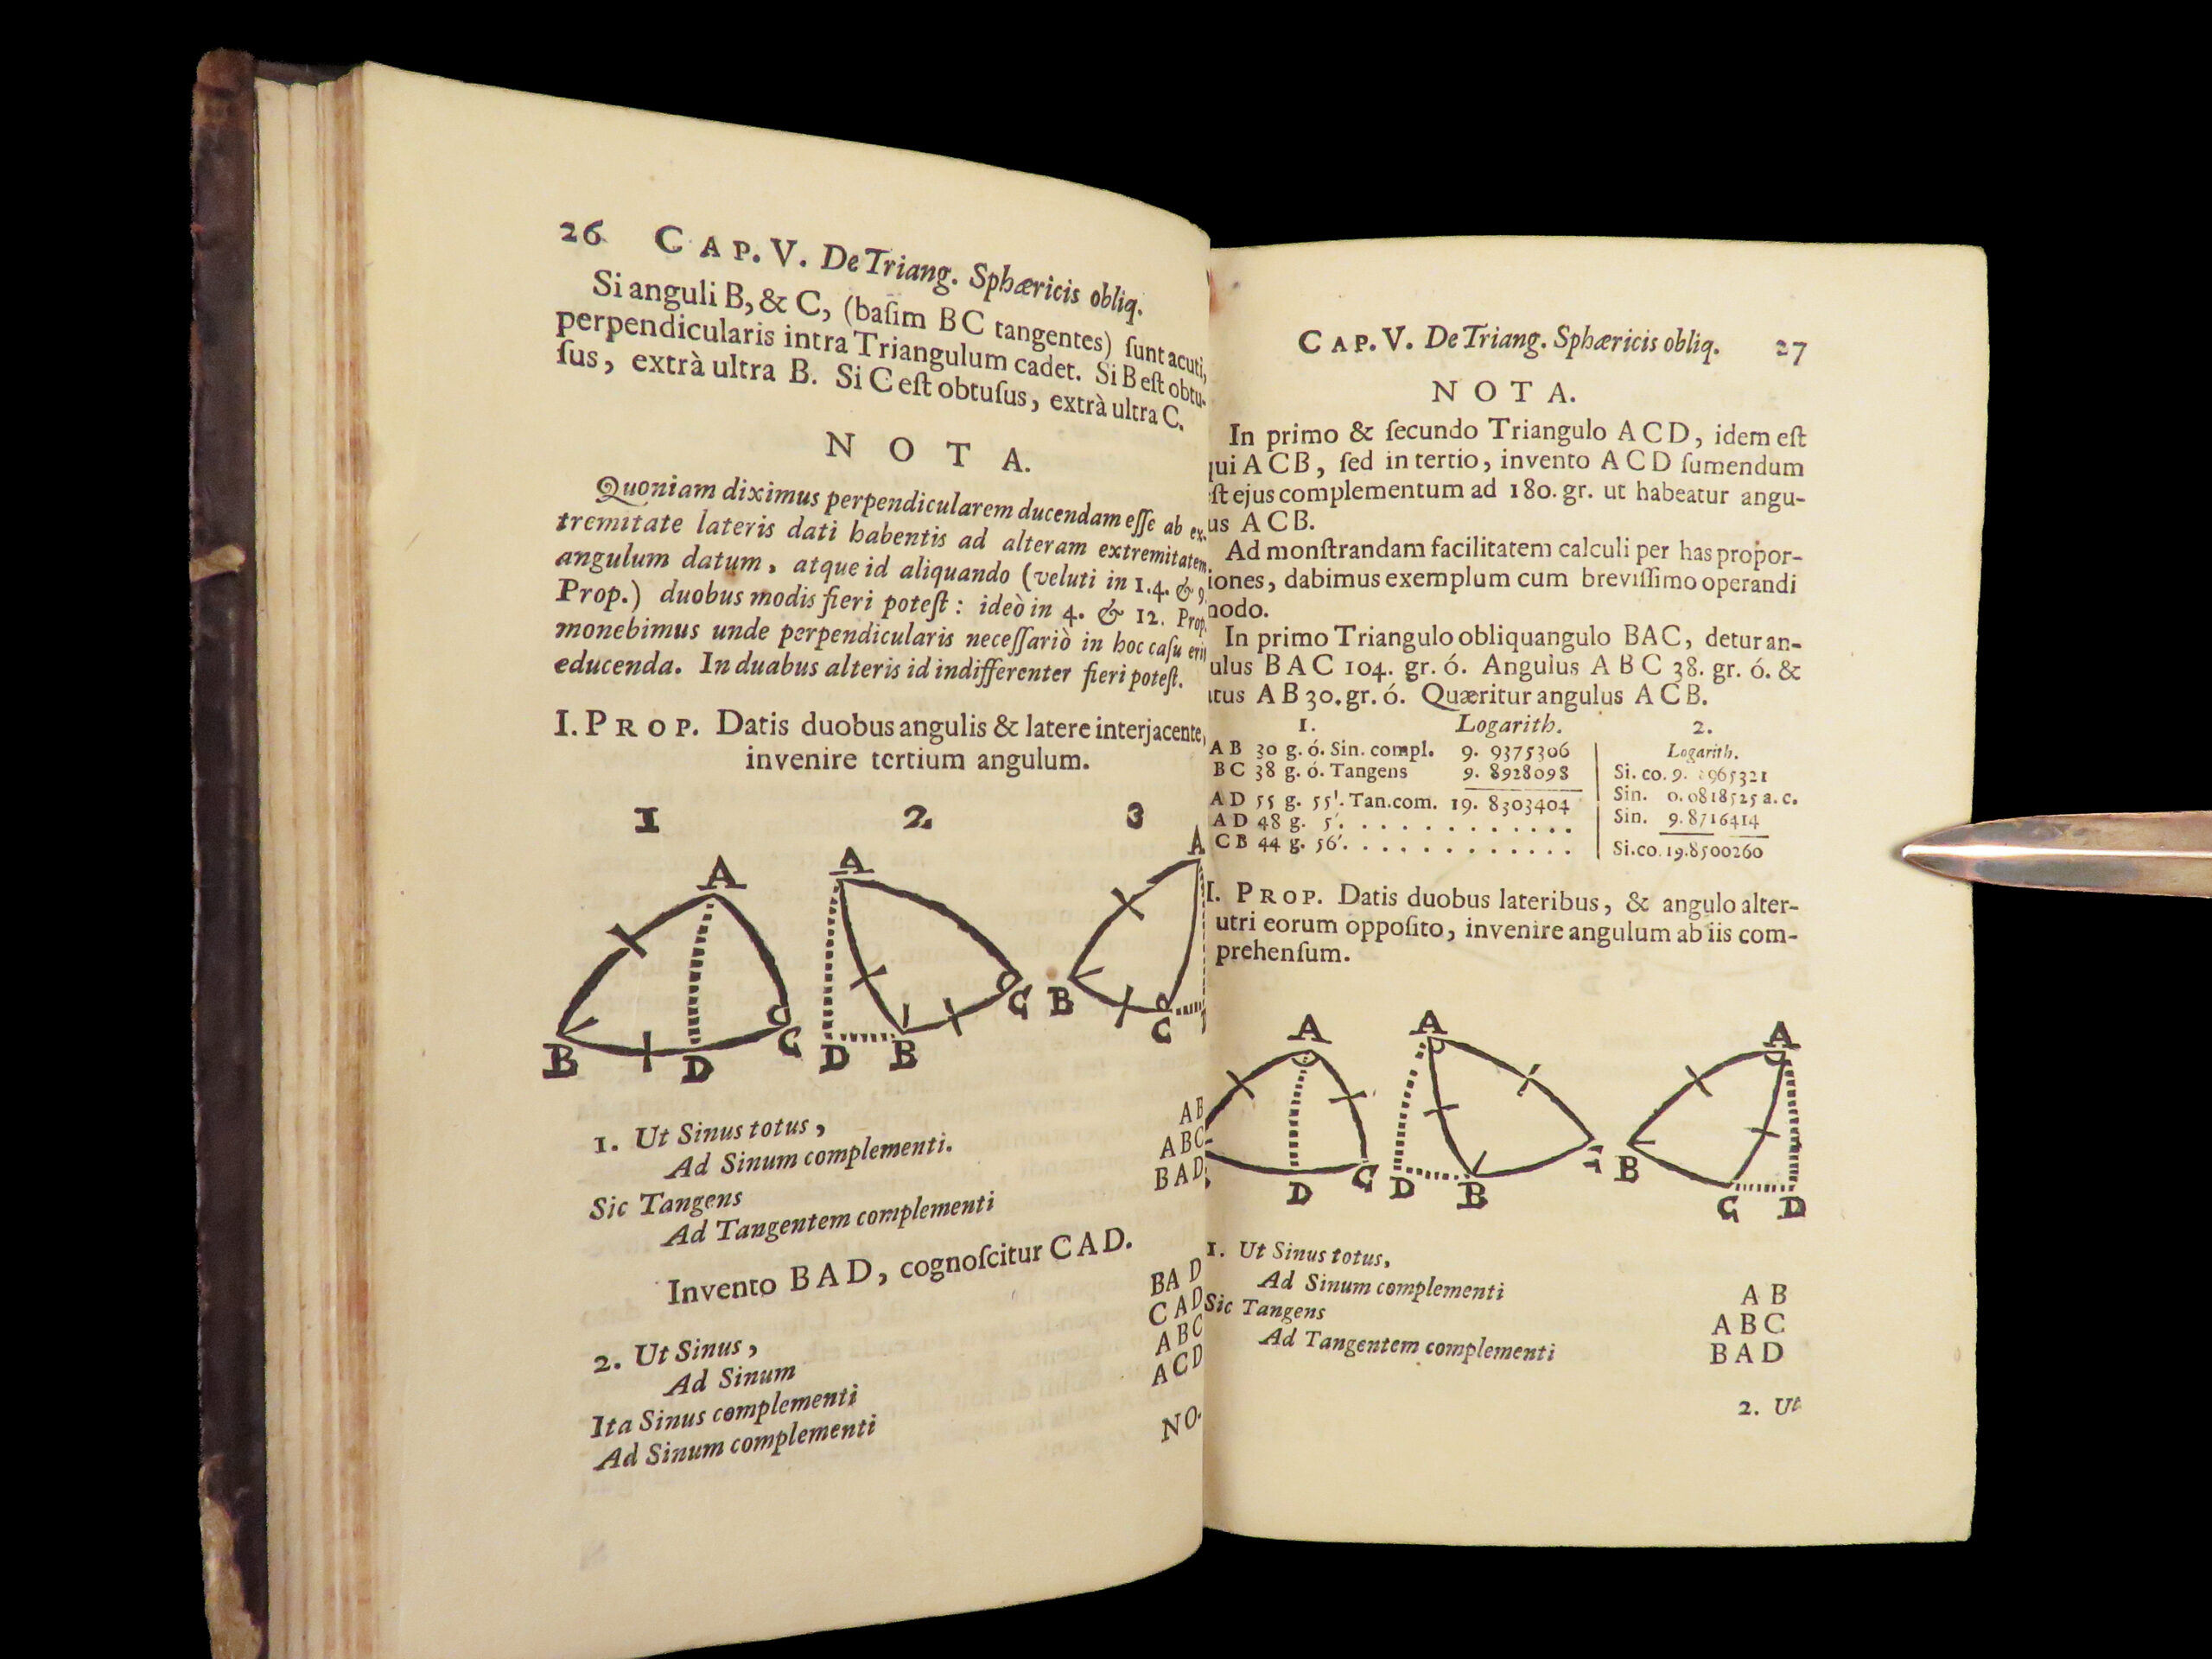 26 CAP. V. De Triang. Sphæricis obliq.
Si anguli B, & C, (baſim BC tangentes) ſunt acuti,
perpendicularis intra Triangulum cadet. Si B eſt obtu-
ſus, extrà ultra B. Si C eſt obtuſus, extrà ultra C.
NOTA.
Quoniam diximus perpendicularem ducendam eſſe ab ex-
tremitate lateris dati habentis ad alteram extremitatem
angulum datum, atque id aliquando (veluti in 1.4. & 9.
Prop.) duobus modis fieri poteſt: ideò in 4. & 12. Prop.
monebimus unde perpendicularis neceſſariò in hoc caſu erit
educenda. In duabus alteris id indifferenter fieri poteſt.
I. PROP. Datis duobus angulis & latere interjacente,
invenire tertium angulum.
1 2 3
A A A
B D C D B C B C
1. Ut Sinus totus,
Ad Sinum complementi. AB
Sic Tangens ABC
Ad Tangentem complementi BAD
Invento BAD, cognoſcitur CAD.
2. Ut Sinus, BAD
Ad Sinum CAD
Ita Sinus complementi ABC
Ad Sinum complementi ACD
NO-
CAP. V. De Triang. Sphæricis obliq. 27
NOTA.
In primo & ſecundo Triangulo ACD, idem eſt
qui ACB, ſed in tertio, invento ACD ſumendum
eſt ejus complementum ad 180. gr. ut habeatur angu-
us ACB.
Ad monſtrandam facilitatem calculi per has propor-
iones, dabimus exemplum cum breviſſimo operandi
modo.
In primo Triangulo obliquangulo BAC, detur an-
ulus BAC 104. gr. ó. Angulus ABC 38. gr. ó. &
atus AB 30. gr. ó. Quæritur angulus ACB.
1. Logarith. 2.
Logarith.
AB 30 g. ó. Sin. compl. 9. 9375306
BC 38 g. ó. Tangens 9. 8928098 Si. co. 9. 8965321
AD 55 g. 55'. Tan. com. 19. 8303404 Sin. 0.0818525 a. c.
AD 48 g. 5'. . . . . . . . . . . . . Sin. 9.8716414
CB 44 g. 56'. . . . . . . . . . . . . Si. co. 19.8500260
I. PROP. Datis duobus lateribus, & angulo alter-
utri eorum oppoſito, invenire angulum ab iis com-
prehenſum.
A A A
D C D B C B C D
1. Ut Sinus totus,
Ad Sinum complementi AB
Sic Tangens ABC
Ad Tangentem complementi BAD
2. Ut